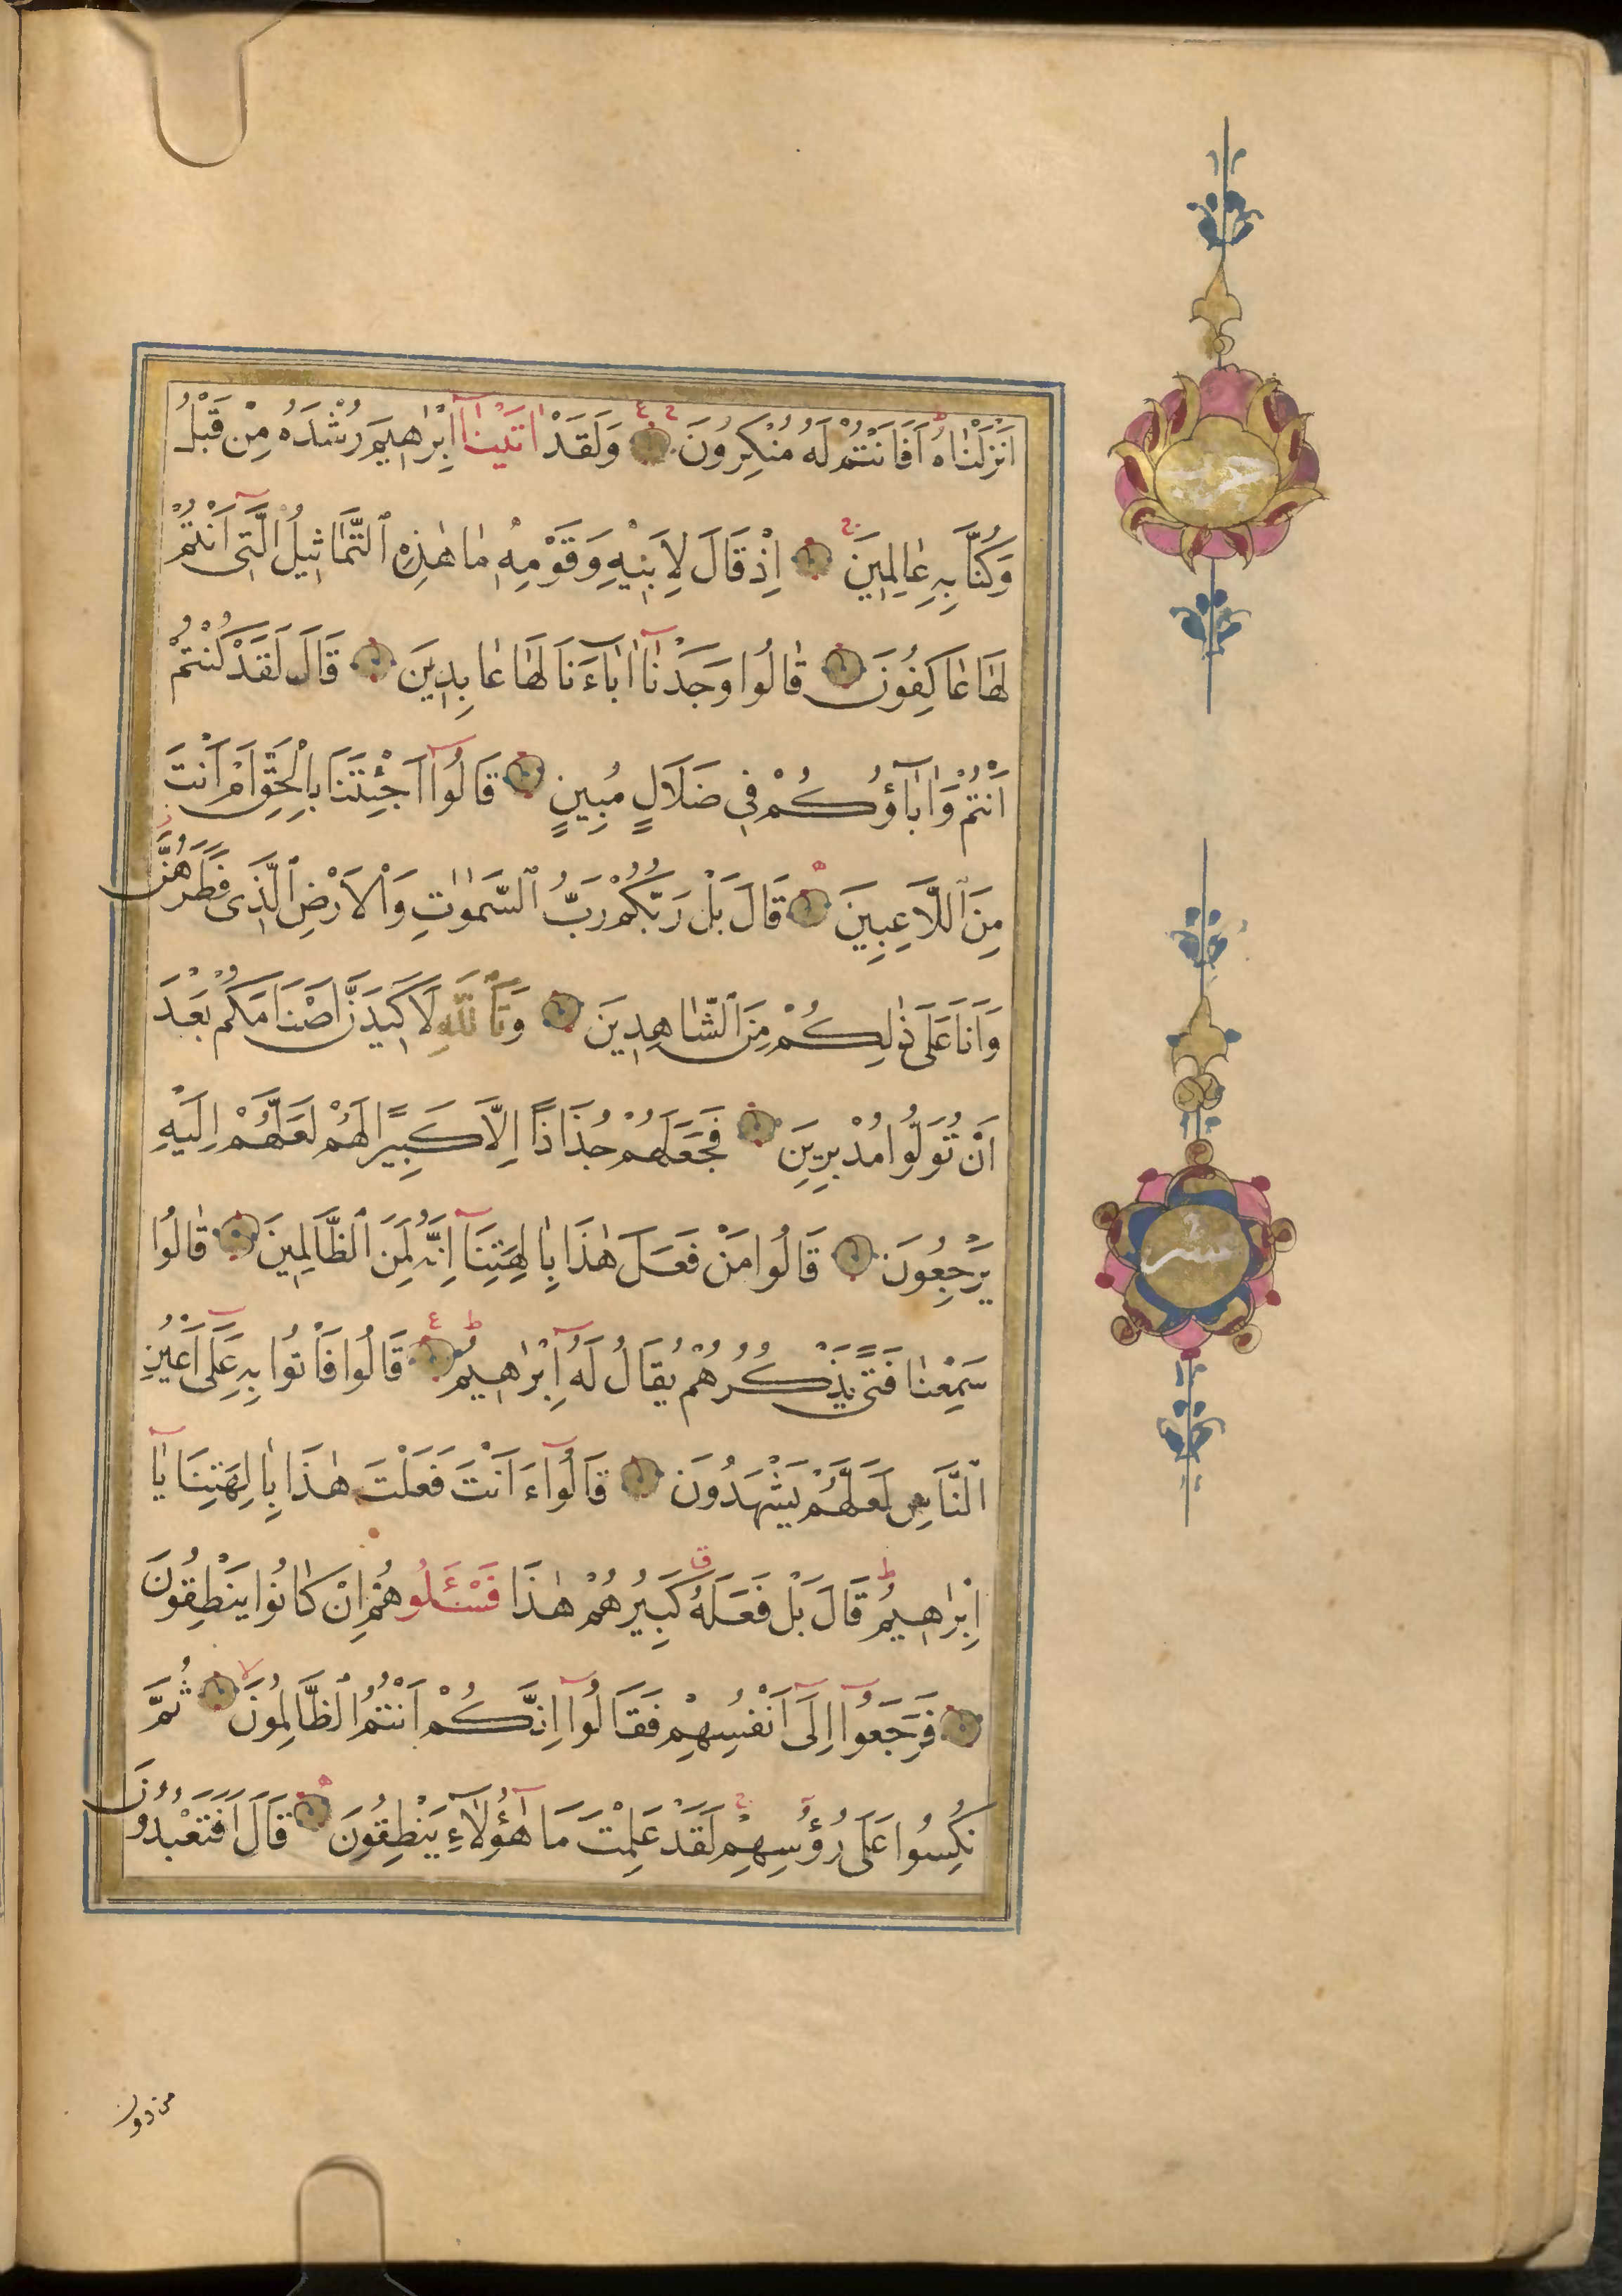 اَنْزَلْنٰاهُ اَفَاَنْتُمْ لَهُ مُنْكِرُونَ وَلَقَدْ اٰتَيْنٰآ اِبْرٰاهِيمَ رُشْدَهُ مِنْ قَبْلُ
وَكُنَّا بِهِ عٰالِمِينَ اِذْ قَالَ لِاَبِيْهِ وَقَوْمِهِ مٰا هٰذِهِ ٱلتَّمَاثِيلُ الَّتِى اَنْتُمْ
لَهَا عٰاكِفُونَ قٰالُوا وَجَدْنٰآ اٰبٰآءَنَا لَهَا عٰابِدِينَ قَالَ لَقَدْ كُنْتُمْ
اَنْتُمْ وَاٰبٰآؤُكُمْ فِى ضَلَالٍ مُبِينٍ قَالُوآ اَجِئْتَنَا بِالْحَقِّ اَمْ اَنْتَ
مِنَ ٱللَّاعِبِينَ قَالَ بَلْ رَبُّكُمْ رَبُّ ٱلسَّمٰوٰتِ وَالْاَرْضِ ٱلَّذِى فَطَرَهُنَّ
وَاَنَا عَلٰى ذٰلِكُمْ مِنَ ٱلشّٰاهِدِينَ وَتَٱللّٰهِ لَاَكِيدَنَّ اَصْنَامَكُمْ بَعْدَ
اَنْ تُوَلُّوا مُدْبِرِينَ فَجَعَلَهُمْ جُذَاذًا اِلَّا كَبِيرًا لَهُمْ لَعَلَّهُمْ اِلَيْهِ
يَرْجِعُونَ قَالُوا مَنْ فَعَلَ هٰذَا بِاٰلِهَتِنَآ اِنَّهُ لَمِنَ ٱلظَّالِمِينَ قٰالُوا
سَمِعْنٰا فَتًى يَذْكُرُهُمْ يُقَالُ لَهُ اِبْرٰاهِيمُ قَالُوا فَاْتُوا بِهِ عَلٰٓى اَعْيُنِ
ٱلنَّاسِ لَعَلَّهُمْ يَشْهَدُونَ قَالُوآ ءَاَنْتَ فَعَلْتَ هٰذَا بِاٰلِهَتِنَا يٰآ
اِبْرٰاهِيمُ قَالَ بَلْ فَعَلَهُ كَبِيرُهُمْ هٰذَا فَسْئَلُوهُمْ اِنْ كٰانُوا يَنْطِقُونَ
فَرَجَعُوآ اِلٰٓى اَنْفُسِهِمْ فَقَالُوآ اِنَّكُمْ اَنْتُمُ ٱلظَّالِمُونَ ثُمَّ
نُكِسُوا عَلٰى رُؤُسِهِمْ لَقَدْ عَلِمْتَ مَا هٰٓؤُلَآءِ يَنْطِقُونَ قَالَ اَفَتَعْبُدُونَ
من دون